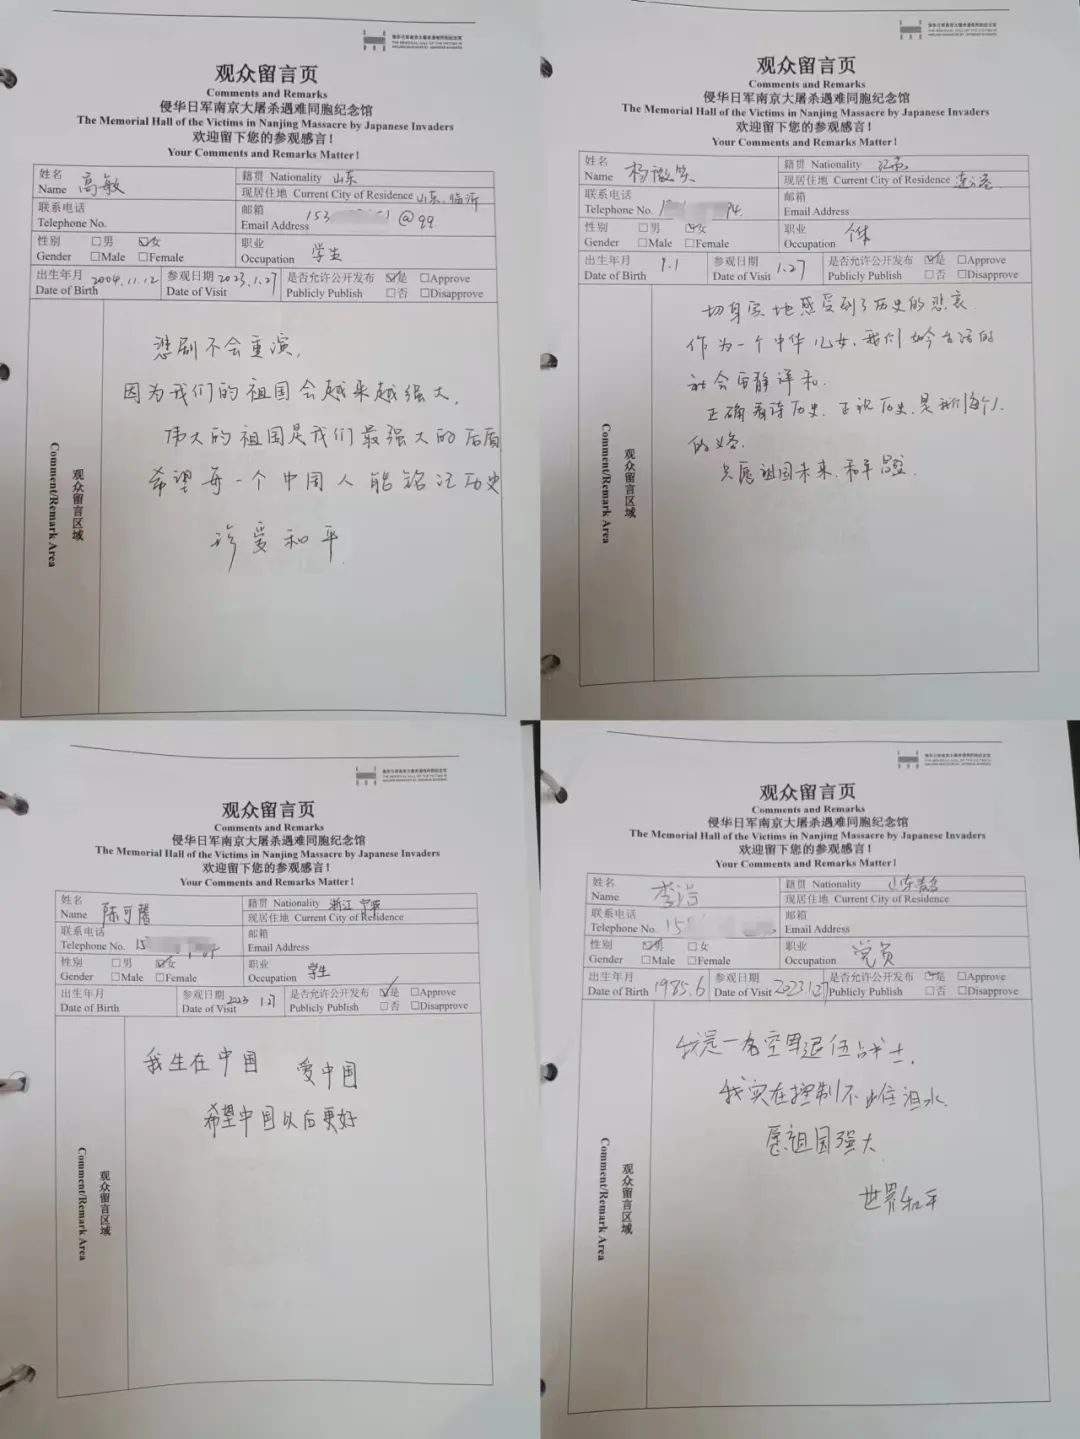 观众留言页
Comments and Remarks
侵华日军南京大屠杀遇难同胞纪念馆
The Memorial Hall of the Victims in Nanjing Massacre by Japanese Invaders
欢迎留下您的参观感言!
Your Comments and Remarks Matter!
姓名 Name 高敏
籍贯 Nationality 山东
现居住地 Current City of Residence 山东.临沂
联系电话 Telephone No.
邮箱 Email Address 153 1@qq
性别 Gender □男 ☑女 □Male □Female
职业 Occupation 学生
出生年月 Date of Birth 2004.11.12
参观日期 Date of Visit 2023.1.27
是否允许公开发布 Publicly Publish ☑是 □Approve □否 □Disapprove
观众留言区域
Comment/Remark Area
悲剧不会重演,
因为我们的祖国会越来越强大,
伟大的祖国是我们最强大的后盾
希望每一个中国人能铭记历史
珍爱和平
观众留言页
Comments and Remarks
侵华日军南京大屠杀遇难同胞纪念馆
The Memorial Hall of the Victims in Nanjing Massacre by Japanese Invaders
欢迎留下您的参观感言!
Your Comments and Remarks Matter!
姓名 Name 杨微笑
籍贯 Nationality 江苏
现居住地 Current City of Residence 连云港
联系电话 Telephone No.
邮箱 Email Address
性别 Gender □男 ☑女 □Male □Female
职业 Occupation 个体
出生年月 Date of Birth 9.1
参观日期 Date of Visit 1.27
是否允许公开发布 Publicly Publish ☑是 □Approve □否 □Disapprove
观众留言区域
Comment/Remark Area
切身实地感受到了历史的悲哀.
作为一个中华儿女,我们如今生活的
社会宁静祥和.
正确看待历史.正视历史.是我们每个人
的义务.
只愿祖国未来.和平昌盛.
观众留言页
Comments and Remarks
侵华日军南京大屠杀遇难同胞纪念馆
The Memorial Hall of the Victims in Nanjing Massacre by Japanese Invaders
欢迎留下您的参观感言!
Your Comments and Remarks Matter!
姓名 Name 陈可馨
籍贯 Nationality 浙江 宁波
现居住地 Current City of Residence
联系电话 Telephone No. 15
邮箱 Email Address
性别 Gender □男 ☑女 □Male □Female
职业 Occupation 学生
出生年月 Date of Birth
参观日期 Date of Visit 2023 1.27
是否允许公开发布 Publicly Publish ☑是 □Approve □否 □Disapprove
观众留言区域
Comment/Remark Area
我生在中国 爱中国
希望中国以后更好
观众留言页
Comments and Remarks
侵华日军南京大屠杀遇难同胞纪念馆
The Memorial Hall of the Victims in Nanjing Massacre by Japanese Invaders
欢迎留下您的参观感言!
Your Comments and Remarks Matter!
姓名 Name 李浩
籍贯 Nationality 山东青岛
现居住地 Current City of Residence
联系电话 Telephone No. 15
邮箱 Email Address
性别 Gender ☑男 □女 □Male □Female
职业 Occupation 党员
出生年月 Date of Birth 1985.6
参观日期 Date of Visit 2023.1.27
是否允许公开发布 Publicly Publish ☑是 □Approve □否 □Disapprove
观众留言区域
Comment/Remark Area
我是一名空军退伍战士.
我实在控制不住泪水.
愿祖国强大
世界和平